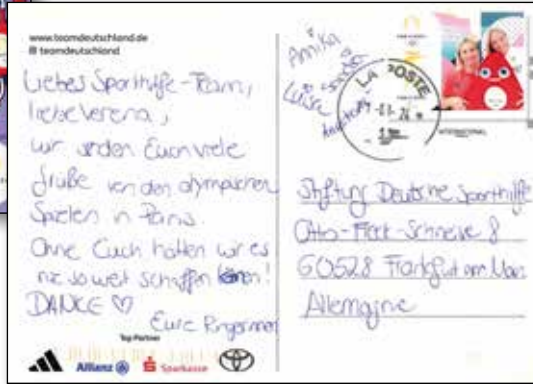 www.teamdeutschland.de
teamdeutschland
Liebes Sporthilfe-Team,
liebe Verena,
wir senden Euch viele
Grüße von den olympischen
Spielen in Paris.
Ohne Euch hätten wir es
nie so weit schaffen können!
DANKE ♡
Eure Ringerinnen
Top Partner
adidas
Allianz
Sparkasse
Annika
Luisa
Sandra
LA POSTE
INTERNATIONAL
Stiftung Deutsche Sporthilfe
Otto-Fleck-Schneise 8
60528 Frankfurt am Main
Allemagne